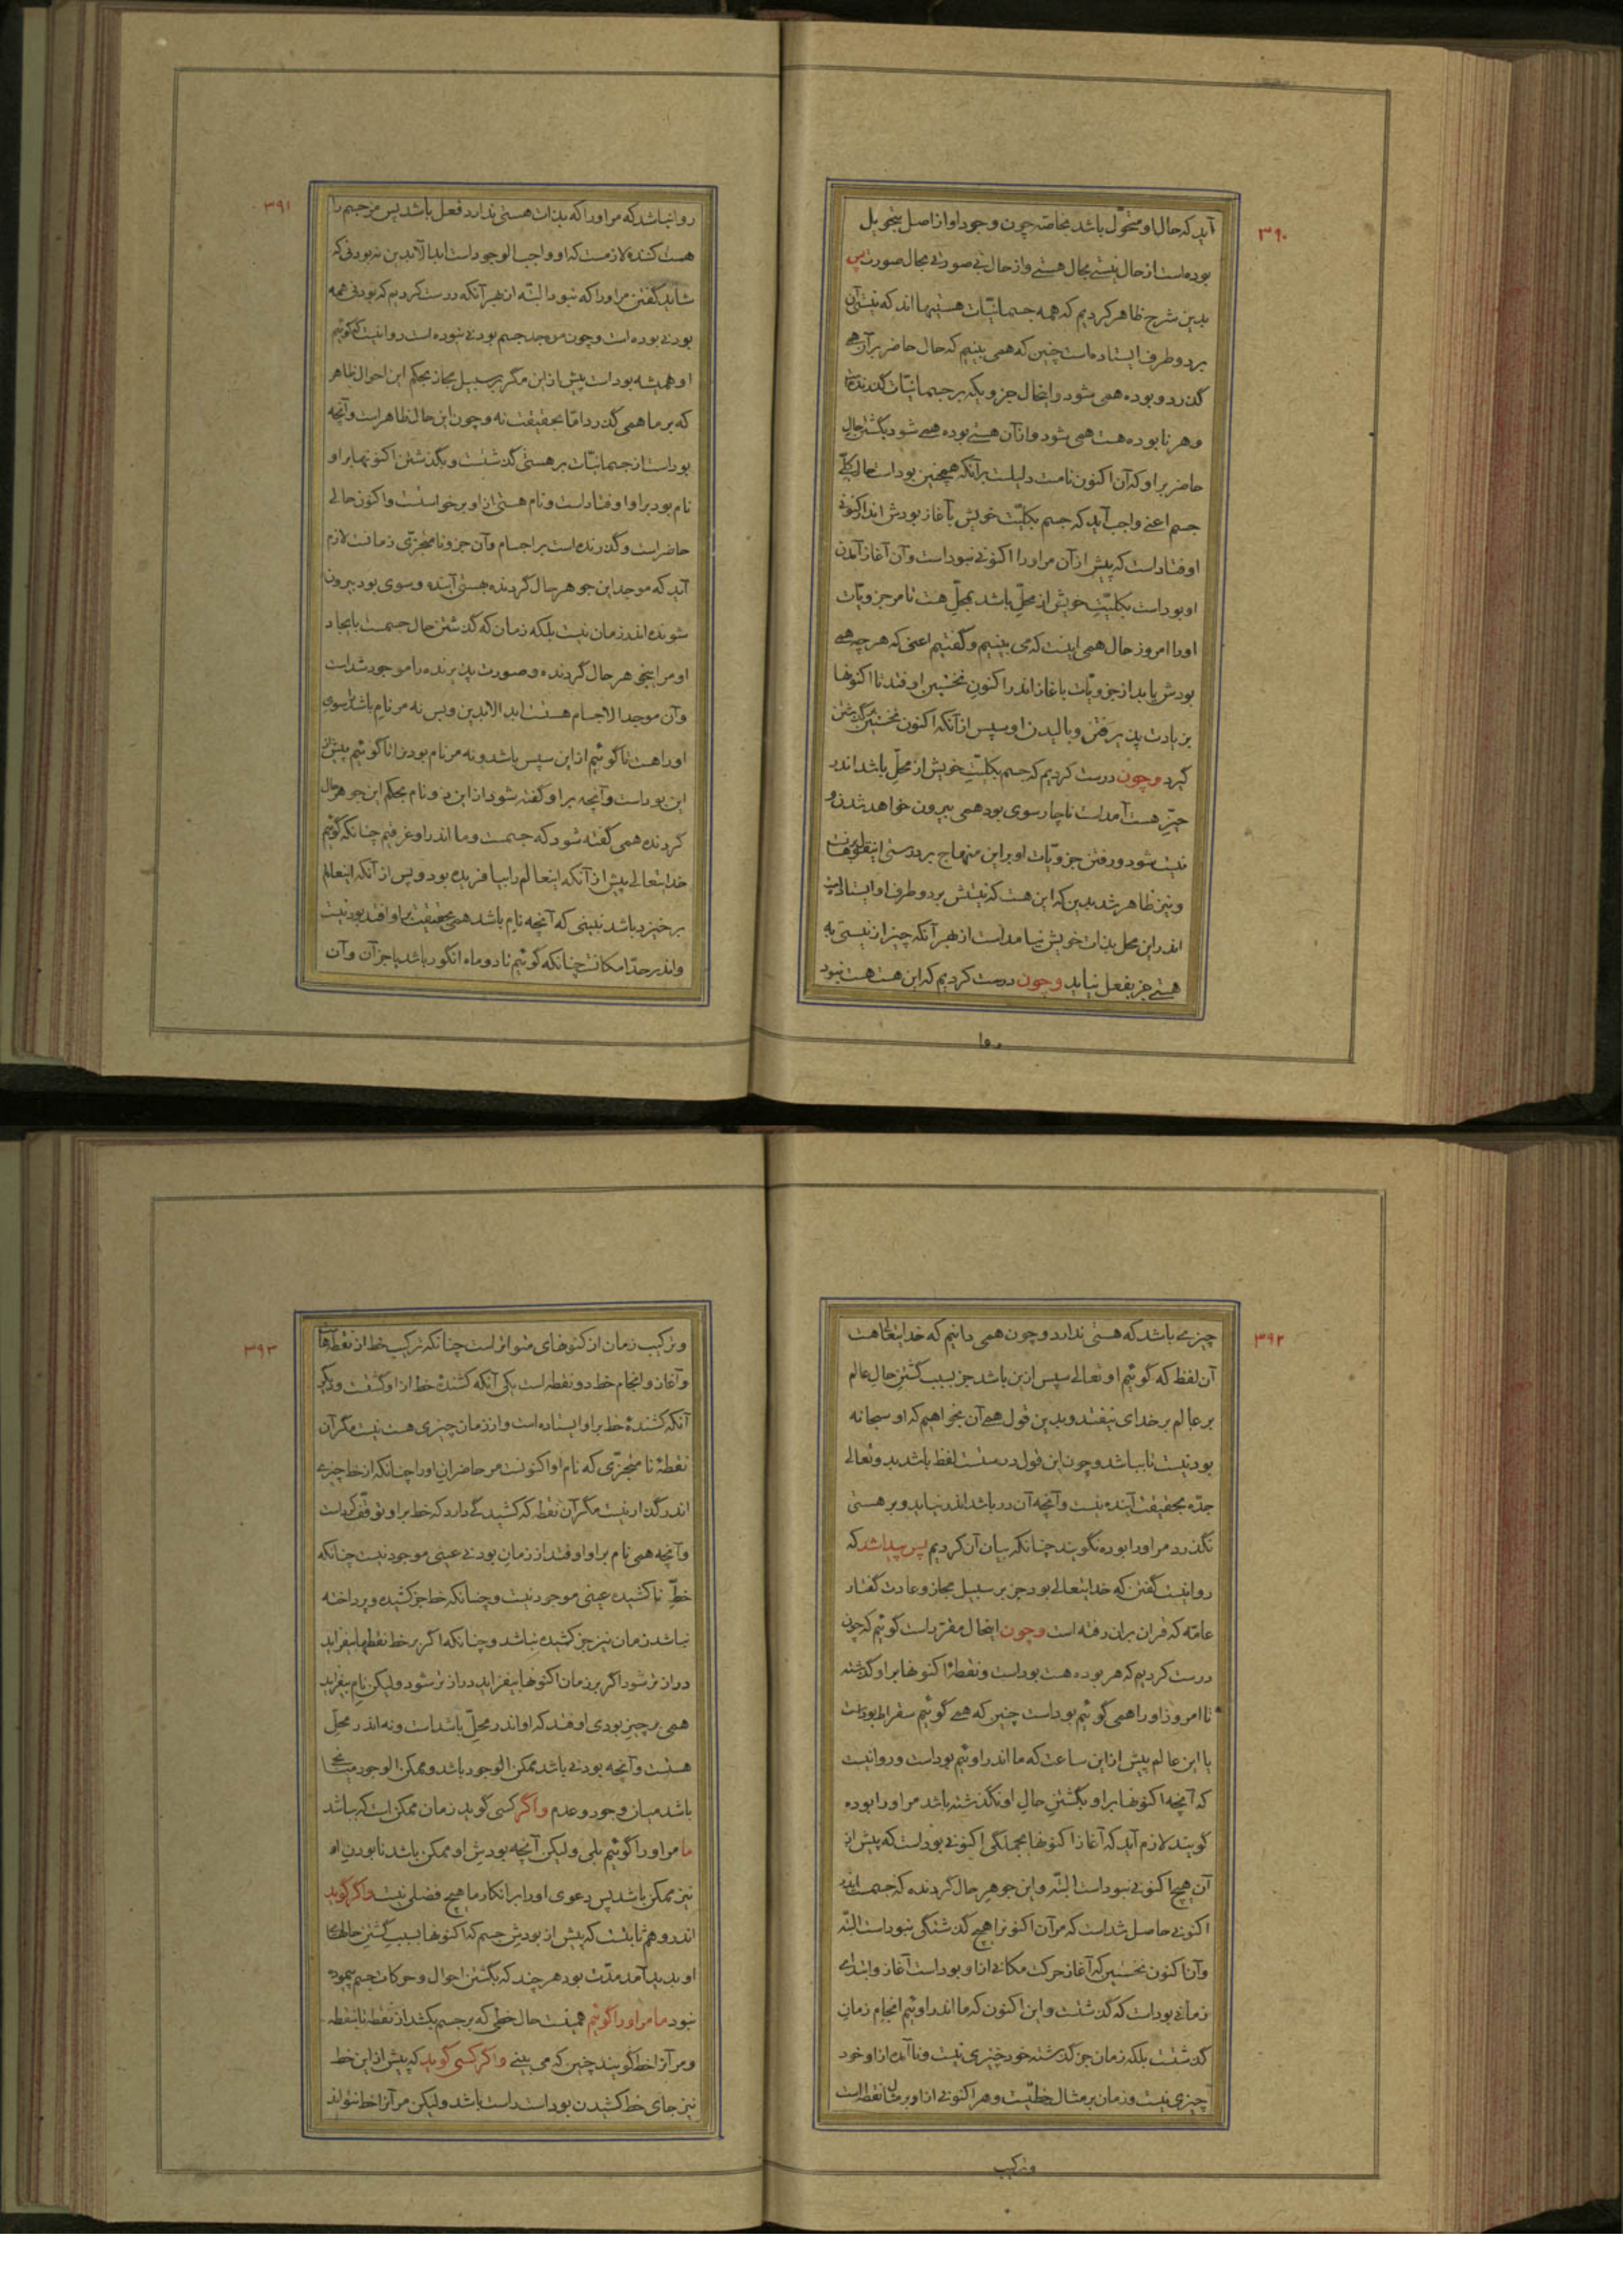 ۳۹۰
آید که حال او متحوّل باشد بخاصّه چون وجود او از اصل بتحویل
بوده است از حال نیستی بحال هستی و از حال بی صورتی بحال صورت پس
بدین شرح ظاهر کردیم که همه جسمانیّات هستیهااند که نیستی آن
بر دو طرف ایستاده است چنین که همی بینیم که حال حاضر بر آن همی
گذرد و بوده همی شود و اینحال جزویکه بر جسمانیّات گذرنده است
و هر نابوده هست همی شود و از آن هستی بوده همی شود بگشتن حال
حاضر بر او که آن اکنون نامست دلیلست بر آنکه همچنین بوداست حال کلّی
جسم اعنی واجب آید که جسم بکلیّت خویش بآغاز بودش اندر اکنونی
اوفتاداست که پیش از آن مر او را اکنونی نبوداست و آن آغاز آمدن
او بوداست بکلیّتِ خویش از محلِّ باشد بمحلِّ هست تا مر جزویّات
او را امروز حال همی اینست که می بینیم و گفتیم اعنی که هر چه همی
بودش یابد از جزویّات بآغاز اندر اکنونِ نخستین اوفتد تا اکنونها
بزیادت پذیرفتن و بالیدن او سپس از آنکه اکنون نخستین بر گذشتن
گیرد و چون درست کردیم که جسم بکلیّتِ خویش از محلِّ باشد اندر
حیّزِ هست آمداست ناچار سوی بود همی بیرون خواهد شدن و
نیست شود و رفتن جزویّات او بر این منهاج بر درستی اینقول برهانست
و نیز ظاهر شد بدین که این هست که نیستش بر دو طرف او ایستاداست
اندر این محل بذات خویش نیامداست از بهر آنکه چیز از نیستی به
هستی جز بفعل نیاید و چون درست کردیم که این هست هست نبود
روا
۳۹۱
روا نباشد که مر او را که بذات هستی ندارد فعل باشد پس مر جسم را
هست کننده لازمست که او واجب الوجود است ابد الآبدین نه بودنی که
شاید گفتن مر او را که نبود البتّه از بهر آنکه درست کردیم که بودنی همه
بودنی بوده است و چون موجد جسم بودنی نبوده است روا نیست که گوئیم
او همیشه بوداست پیش از این مگر بر سبیل مجاز بحکم این احوال ظاهر
که بر ما همی گذرد امّا بحقیقت نه و چون این حال ظاهر است و آنچه
بوداست از جسمانیّات بر هستی گذشتست و بگذشتن اکنونها بر او
نام بود بر او اوفتاداست و نام هستی از او برخواستست و اکنون حالی
حاضر است و گذرنده است بر اجسام و آن جزو نامتجزّی زمانست لازم
آید که موجد این جوهر حال گردنده هستی آینده و سوی بود بیرون
شونده اندر زمان نیست بلکه زمان که گذشتن حال جسمست بایجاد
او مر این جوهر حال گردنده و صورت پذیرنده را موجود شداست
و آن موجد الاجسام هستست ابد الآبدین و بس نه مر نامِ باشد را سوی
او راهست تا گوئیم از این سپس باشد و نه مر نام بود را تا گوئیم پیش از
این بوداست و آنچه بر او گفته شود از این دو نام بحکم این جوهر حال
گردنده همی گفته شود که جسمست و ما اندر او غرقیم چنانکه گوئیم
خدایتعالی پیش از آنکه اینعالم را بیافریده بود و پس از آنکه اینعالم
برخیزد باشد نبینی که آنچه نام باشد همی بحقیقت بر او افتد بود نیست
و اندر حدّ امکانست چنانکه گوئیم تا دو ماه انگور باشد یا جز آن و آن
۳۹۲
چیزی باشد که هستی ندارد و چون همی دانیم که خدایتعالی هست
آن لفظ که گوئیم او تعالی سپس ازین باشد جز بسبب گشتنِ حالِ عالم
بر عالم بر خدای نیفتد و بدین قول همی آن بخواهیم که او سبحانه
بود نیست تا بباشد و چون این قول درستست لفظ باشد بدو تعالی
جدّه بحقیقت آینده نیست و آنچه آن در باشد اندر نیاید و بر هستی
نگذرد مر او را بوده نگویند چنانکه بیان آن کردیم پس پیدا شد که
روا نیست گفتن که خدایتعالی بود جز بر سبیل مجاز و عادت گفتار
عامّه که قران بران رفته است و چون اینحال مقرّر است گوئیم که چون
درست کردیم که هر بوده هست بوداست و نقطهٔ اکنونها بر او گذشته
تا امروز او را همی گوئیم بوداست چنین که همی گوئیم سقراط بوداست
یا این عالم پیش از این ساعت که ما اندر اوئیم بوداست و روا نیست
که آنچه اکنونها بر او بگشتنِ حالِ او نگذشته باشد مر او را بوده
گویند لازم آید که آغاز اکنونها بجملگی اکنونی بوداست که پیش از
آن هیچ اکنونی نبوداست البتّه و این جوهرِ حال گردنده که جسمست اندر
اکنونی حاصل شداست که مر آن اکنونرا هیچ گذشتگی نبوداست البتّه
و آن اکنون نخستین که آغاز حرکت مکانی از او بوداست آغاز و ابتدای
زمانی بوداست که گذشتست و این اکنون که ما اندر اوئیم انجام زمانِ
گذشتست بلکه زمان جز گذشته خود چیزی نیست و ناآمده از او خود
چیزی نیست و زمان بر مثال خطّیست و هر اکنونی از او بر مثال نقطه است
و ترکیب
۳۹۳
و ترکیب زمان از کنونهای متواتر است چنانکه ترکیب خط از نقطه‌هاست
و آغاز و انجام خط دو نقطه است یکی آنکه کشندهٔ خط از او گشتست و دیگر
آنکه کشندهٔ خط بر او ایستاده است و از زمان چیزی هست نیست مگر آن
نقطهٔ نامتجزّی که نام او اکنونست مر حاضران او را چنانکه از خط چیزی
اندر گذار نیست مگر آن نقطه که کشیدگی دارد که خط بر او توقّف کرداست
و آنچه همی نام بر او اوفتد از زمانِ بودنی عینی موجود نیست چنانکه
خطِّ ناکشیده عینی موجود نیست و چنانکه خط جز کشیده و پرداخته
نباشد زمان نیز جز کشیده نباشد و چنانکه اگر بر خط نقطها بیفزاید
درازتر شود اگر بر زمان اکنونها بیفزاید درازتر شود ولیکن نامِ بیفزاید
همی بر چیزِ بودی اوفتد که او اندر محلِّ باشداست و نه اندر محلِّ
هستست و آنچه بودنی باشد ممکن الوجود باشد و ممکن الوجود میانجی
باشد میان وجود و عدم و اگر کسی گوید زمان ممکن است که بباشد
ما مر او را گوئیم بلی ولیکن آنچه بودشِ او ممکن باشد نابودن او
نیز ممکن باشد پس دعوی او را بر انکار ما هیچ فضلی نیست و اگر گوید
اندر وهم ثابتست که پیش از بودشِ جسم که اکنونها بسببِ گشتنِ حالهای
او پدید آمد مدّت بود هر چند که بگشتن احوال و حرکات جسم پیموده
نبود ما مر او را گوئیم همینست حال خطّی که بر جسم بکشد از نقطه تا بنقطه
و مر آنرا خط گویند چنین که می بینی و اگر کسی گوید که پیش از این خط
نیز جای خط کشیدن بوداست راست باشد ولیکن مر آنرا خط نتواند